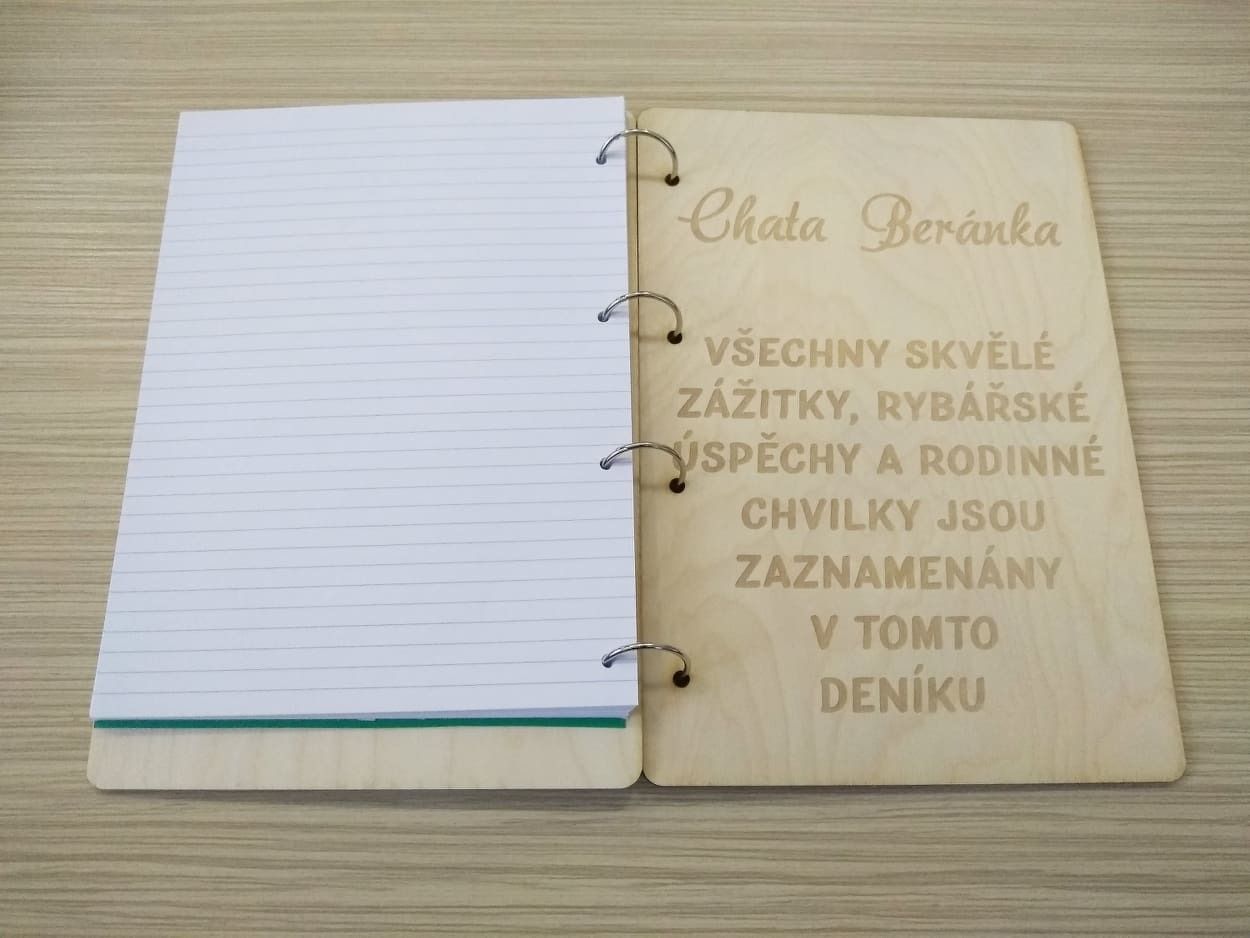 Chata Beránka
VŠECHNY SKVĚLÉ
ZÁŽITKY, RYBÁŘSKÉ
ÚSPĚCHY A RODINNÉ
CHVILKY JSOU
ZAZNAMENÁNY
V TOMTO
DENÍKU